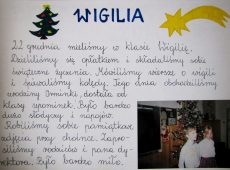 WIGILIA
22 grudnia mieliśmy w klasie Wigilię.
Dzieliliśmy się opłatkiem i składaliśmy sobie
świąteczne życzenia. Mówiliśmy wiersze o wigili
i śpiewaliśmy kolędy. Tego dnia obchodziliśmy
urodziny Dominiki, dostała od
klasy upominek. Było bardzo
dużo słodyczy i napojów.
Robiliśmy sobie pamiątkowe
zdjęcia przy choince. Zapro-
siliśmy rodziców i pana dy-
rektora. Było bardzo miło.